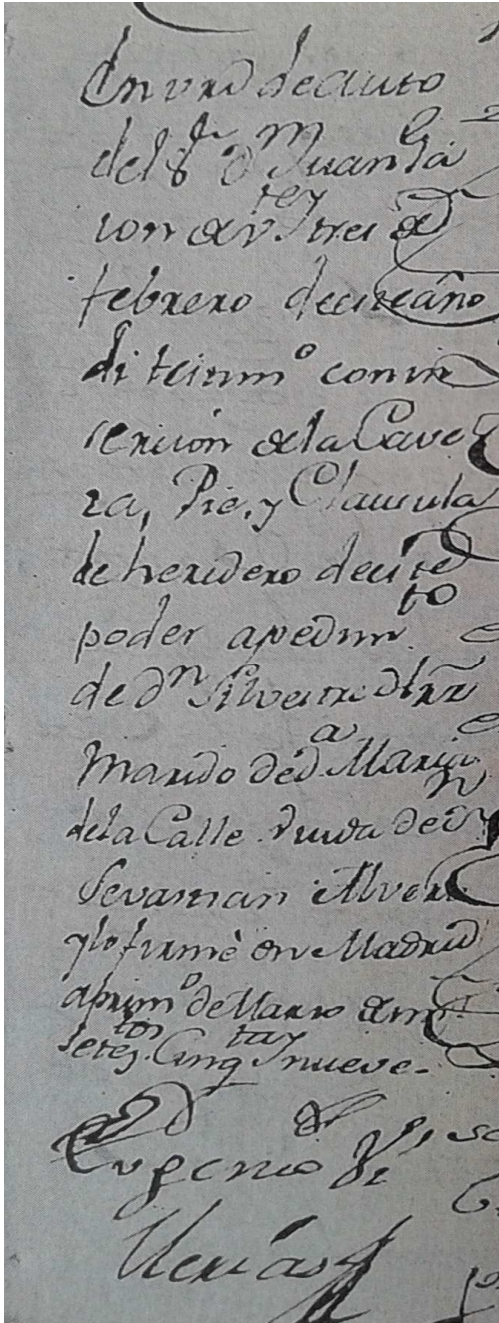 En vrd de auto
del Sr. Dn Juan
con de vte y tres de
febrero de este año
di testimo con in
sercion de la Cave
za, Pie, y Clausula
de heredero de este
poder a pedimto
de Dn Silvestre
Marido de Da Maria
de la Calle Viuda de Dn
Sevastian Alvere
y lo firmè en Madrid
a primo de Marzo de mil
setezos Cinqta y nueve.
Eugenio